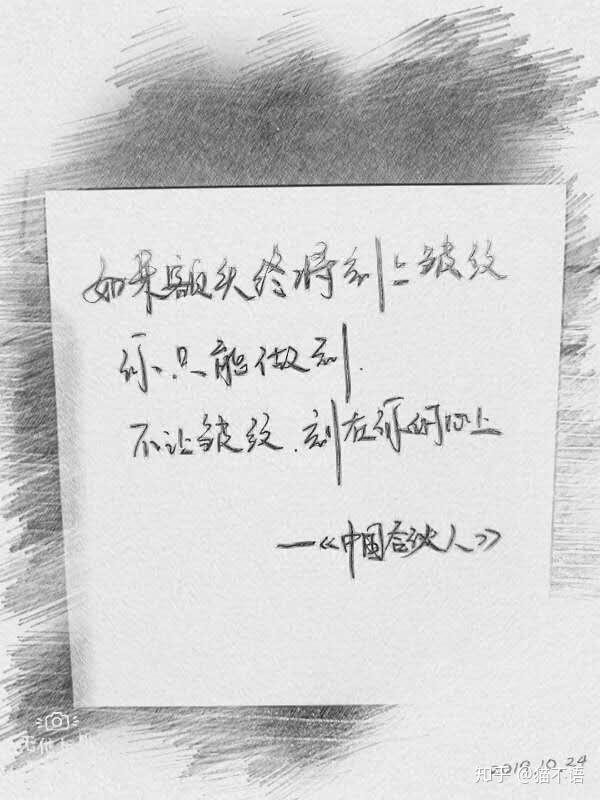 如果额头终将刻上皱纹
你只能做到.
不让皱纹.刻在你的心上
—《中国合伙人》
无他相机
2018.10.24
知乎 @猫不语